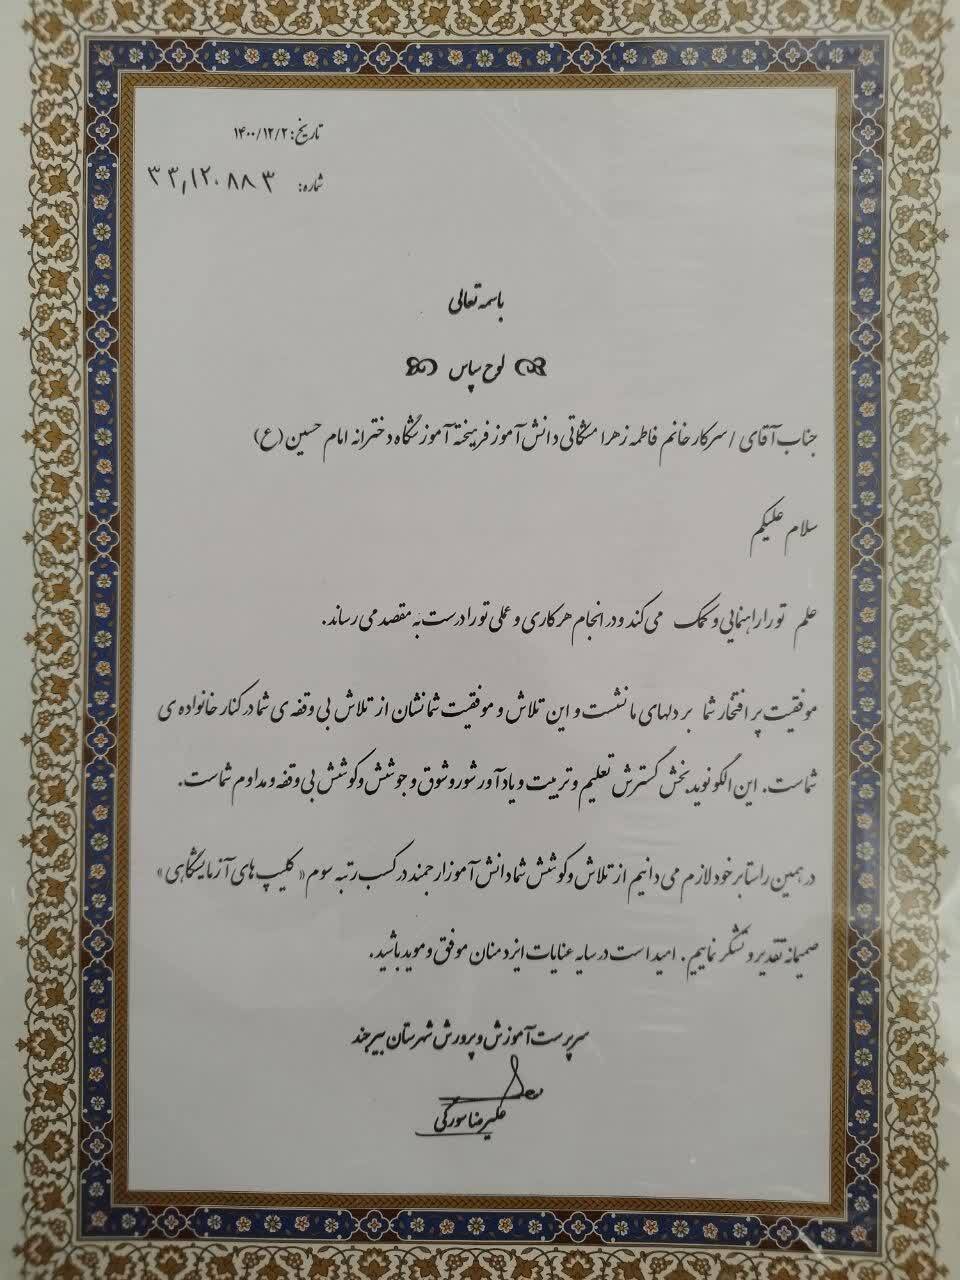 تاریخ: ۱۴۰۰/۱۲/۲
شماره: ۳۳,۱۲۰۸۸۳
باسمه تعالی
لوح سپاس
جناب آقای / سرکار خانم فاطمه زهرا مشکاتی دانش آموز فرهیخته آموزشگاه دخترانه امام حسین (ع)
سلام علیکم
علم تو را راهنمایی و کمک می کند و در انجام هر کاری و عملی تو را درست به مقصد می رساند.
موفقیت پر افتخار شما بر دلهای ما نشست و این تلاش و موفقیت شما نشان از تلاش بی وقفه ی شما در کنار خانواده ی
شماست. این الگو نوید بخش گسترش تعلیم و تربیت و یادآور شور و شوق و جوشش و کوشش بی وقفه و مداوم شماست.
در همین راستا بر خود لازم می دانیم از تلاش و کوشش شما دانش آموز ارجمند در کسب رتبه سوم « کلیپ های آزمایشگاهی »
صمیمانه تقدیر و تشکر نماییم. امید است در سایه عنایات ایزد منان موفق و موید باشید.
سرپرست آموزش و پرورش شهرستان بیرجند
علیرضا سورگی